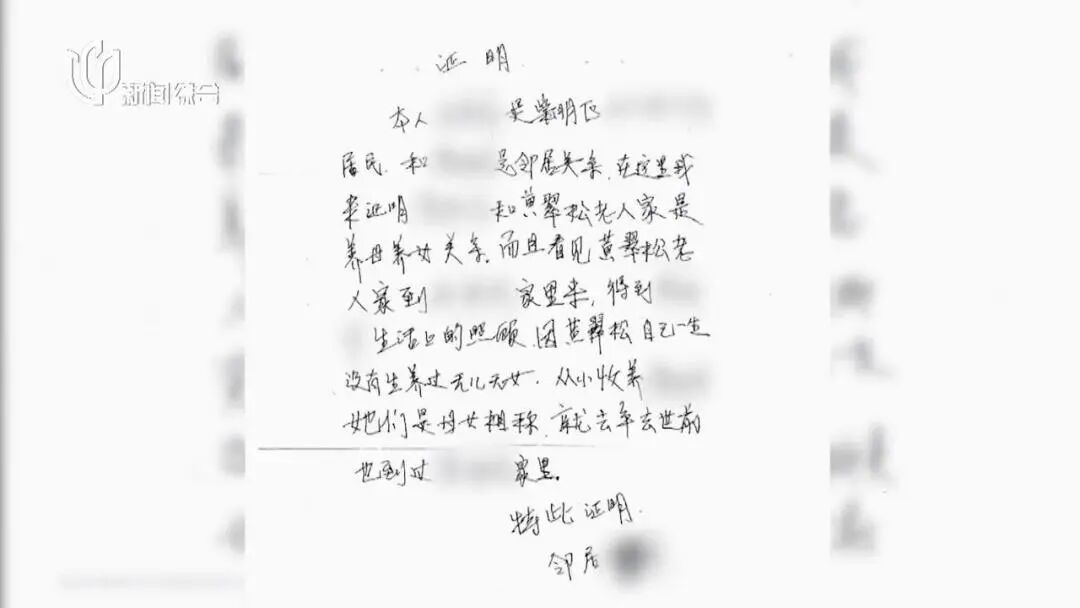 新闻综合
证明
本人 是紫明区
居民、和 是邻居关系,在这里我
来证明 和黄翠松老人家是
养母养女关系,而且看见黄翠松老
人家到 家里来,得到
生活上的照顾,因黄翠松自己一生
没有生养过无儿无女,从小收养
她们是母女相称,就去年去世前
也到过 家里。
特此证明.
邻居